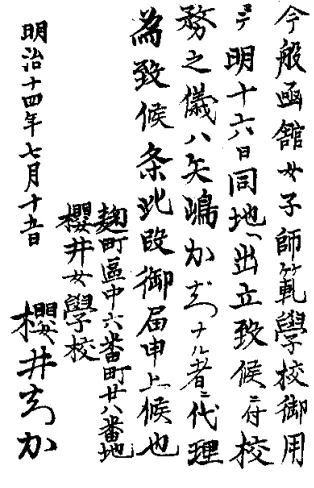 今般函館女子師範學校御用
明十六日同地ヘ出立致候ニ付校
務之儀ハ矢嶋かぢナル者ニ代理
為致候条此段御届申上候也
麹町區中六番町廿八番地
櫻井女學校
明治十四年七月十五日
櫻井ちか